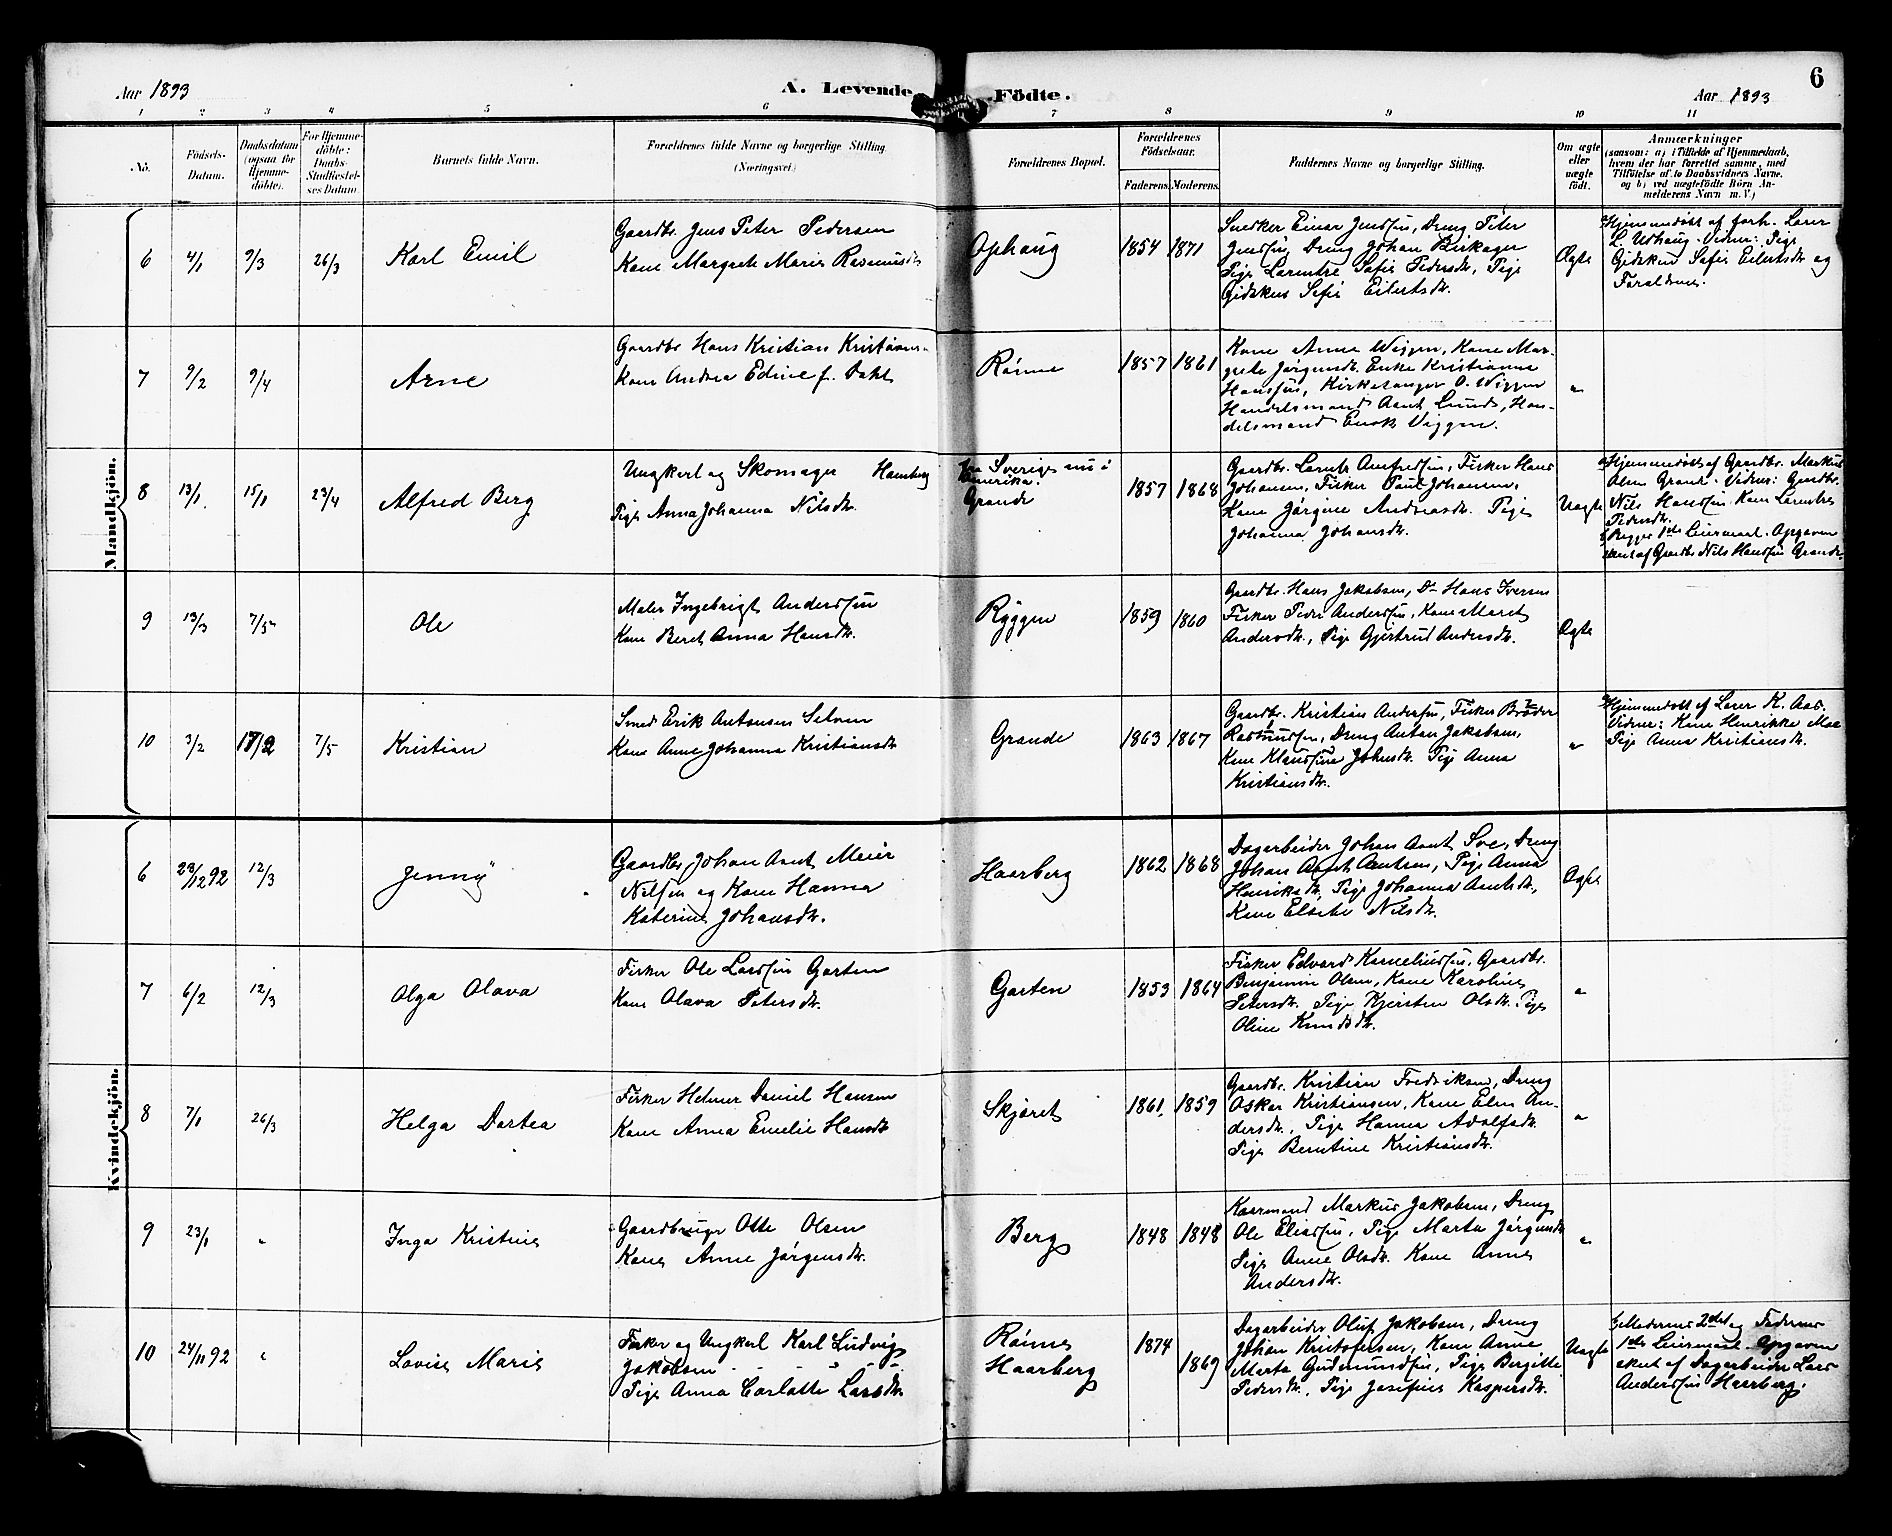 Aar 1893
A. Levende
Födte.
Aar 1893
6
1 2 3 4 5 6 7 8 9 10 11
No.
Födsels-
Datum.
Daabsdatum
(ogsaa for
Hjemme-
döbte).
For Hjemme-
döbte:
Daabs-
Stadfæstel-
ses Datum
Barnets fulde Navn.
Forældrenes fulde Navne og borgerlige Stilling
(Næringsvei.)
Forældrenes Bopæl.
Forældrenes
Födselsaar.
Faderens. Moderens.
Faddernes Navne og borgerlige Stilling.
Om ægte
eller
uægte
födt.
Anmærkninger
(saasom: a) i Tilfælde af Hjemmedaab,
hvem der har forrettet samme, med
Tilföielse af to Daabsvidners Navne,
og b) ved uægtefödte Börn An-
melderens Navn m. V.)
Mandkjön.
6 4/1 9/3 26/3 Karl Emil
Gaardbr. Jens Peter Pedersen
Kone Margrete Marie Rasmusdt
Ophaug 1854 1871
Snedker Einar Jensen, Dreng Peter
Jensen Dreng Johan Birkager
Pige Larentse Sofie Pedersdt, Pige
Gidsken Sofie Eilertsdt.
Ægte
a Hjemmedøbt af forh. Lærer
L. Udhaug. Vidner: Pige
Gidsken Sofie Eilertsdt og
Forældrene.
7 9/2 9/4 Arne
Gaardbr Hans Kristian Kristiansen
Kone Andrea Edine f. Dahl
Rönne 1857 1861
Kone Anne Wiggen, Kone Mar-
grete Jørgensdt. Enke Kristianna
Hansen, Kirkesanger O. Wiggen
Handelsmand Arnt Lund, Han-
delsmand Enok Viggen.
"
8 13/1 15/1 23/4 Alfred Berg
Ungkarl og Skomager Hamberg
Pige Anna Johanna Nilsdt.
fra Sverige nu i
Amerika.
Grande
1857 1868
Gaardbr. Larnts Amfredsen, Fisker Hans
Johansen, Fisker Paul Johansen,
Kone Jørgine Andreasdt. Pige
Johanna Johansdt.
Uægte
a Hjemmedøbt af Gaardbr. Markus
Olsen Grande. Vidner: Gaardbr.
Nils Hansen. Kone Lerentse
Pedersdt.
b Begges 1ste Leiermaal. Opgaven
skent af Gaardbr Nils Hansen Grande.
9 13/3 7/5 Ole
Maler Ingebrigt Andersen
Kone Beret Anna Hansdt.
Ryggen 1859 1860
Gaardbr. Hans Jakobsen, Do Hans Iversen
Fisker Peder Andersen, Kone Maret
Andersdt., Pige Gjertrud Andersdt.
Ægte
10 3/2 17/2 7/5 Kristian
Smed Erik Antonsen Selven
Kone Anne Johanna Kristiansdt
Grande 1863 1867
Gaardbr. Kristian Andersen, Fisker Brøder
Rasmussen, Dreng Anton Jakobsen,
Kone Klaussine Johnsdt. Pige Anna
Kristiansdt.
"
a Hjemmedøbt af Lærer K. Aas.
Vidner: Kone Henrikke Moe
Pige Anna Kristiansdt.
Kvindekjön.
6 28/12 92 12/3 Jenny
Gaardbr Johan Arnt Meier
Nilsen og Kone Hanna
Katerine Johansdt.
Haarberg 1862 1868
Dagarbeider Johan Arnt Sve, Dreng
Johan Arnt Arntsen, Pige Anna
Henriksdt, Pige Johanna Arntsdt.,
Kone Elsebe Nilsdt.
Ægte
7 6/2 12/3 Olga Olava
Fisker Ole Larsen Garten
Kone Olava Petersdt.
Garten 1853 1864
Fisker Edvard Korneliussen, Gaardbr.
Benjamin Olsen, Kone Karoline
Petersdt. Pige Kjersten Olsdt. Pige
Oline Knudsdt.
"
8 7/1 26/3 Helga Dortea
Fisker Helmer Daniel Hansen
Kone Anna Emelie Hansdt
Skjøret 1861 1859
Gaardbr. Kristian Fredriksen, Dreng
Oskar Kristiansen, Kone Elen An-
dersdt., Pige Hanna Adolfsdt.
Pige Berntine Kristiansdt.
"
9 23/1 " Inga Kristine
Gaardbruger Otte Olsen
Kone Anne Jørgensdt.
Berg 1848 1848
Kaarmand Markus Jakobsen, Dreng
Ole Eliassen, Pige Marta Jørgensdt
Pige Anne Olsdt. Kone Anne
Andersdt.
"
10 24/11 92 " Lovise Marie
Fisker og Ungkarl Karl Ludvig
Jakobsen
Pige Anna Carlotte Larsdt.
Rönne
Haarberg
1874
1869
Dagarbeider Oluf Jakobsen, Dreng
Johan Kristofersen, Kone Anne
Marta Gudmundsen, Pige Bergitte
Pedersdt., Pige Josefine Kaspersdt.
Uægte
b Moderens 2det og Faderens
1ste Leiermaal. Opgaven
skent af Dagarbeider Lars
Andersen Haarberg.